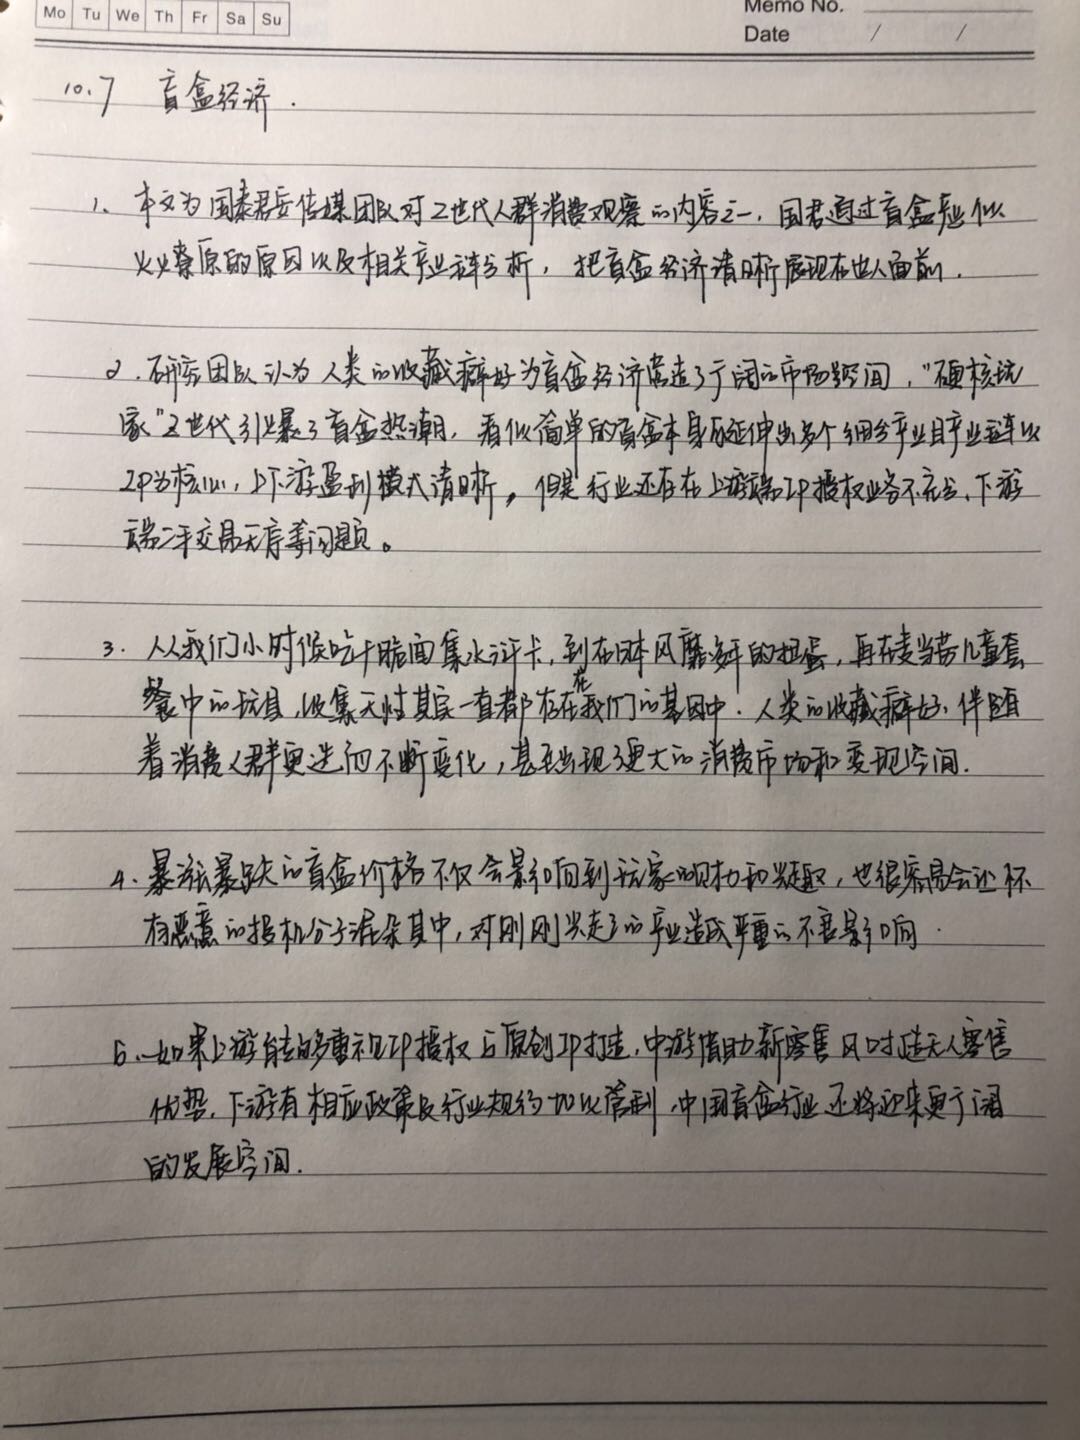 Mo Tu We Th Fr Sa Su
Memo No.
Date / /
10.7 盲盒经济.
1. 本文为国泰君安传媒团队对Z世代人群消费观察的内容之一,国君通过盲盒产业似
火燎原的原因以及相关产业链分析,把盲盒经济清晰展现在世人面前.
2. 研究团队认为人类的收藏癖好为盲盒经济营造了广阔的市场空间,"硬核玩
家"Z世代引爆了盲盒热潮,看似简单的盲盒本身反延伸出多个细分产业且产业链以
IP为核心,上下游盈利模式清晰,但是行业还存在上游端IP授权业务不充分、下游
端二手交易无序等问题。
3. 从我们小时候吃干脆面集水浒卡,到在日本风靡多年的扭蛋,再在麦当劳儿童套
餐中的玩具,收集天性其实一直都存在在我们的基因中.人类的收藏癖好,伴随
着消费人群更迭而不断变化,甚至出现了更大的消费市场和变现空间.
4. 暴涨暴跌的盲盒价格不仅会影响到玩家的财力和兴趣,也很容易会让怀
有恶意的投机分子混杂其中,对刚刚兴起了的产业造成严重的不良影响.
5. 如果上游能够多重视IP授权与原创IP打造,中游借助新零售风口打造无人零售
优势,下游有相应政策及行业规约加以管制,中国盲盒行业还将迎来更广阔
的发展空间.